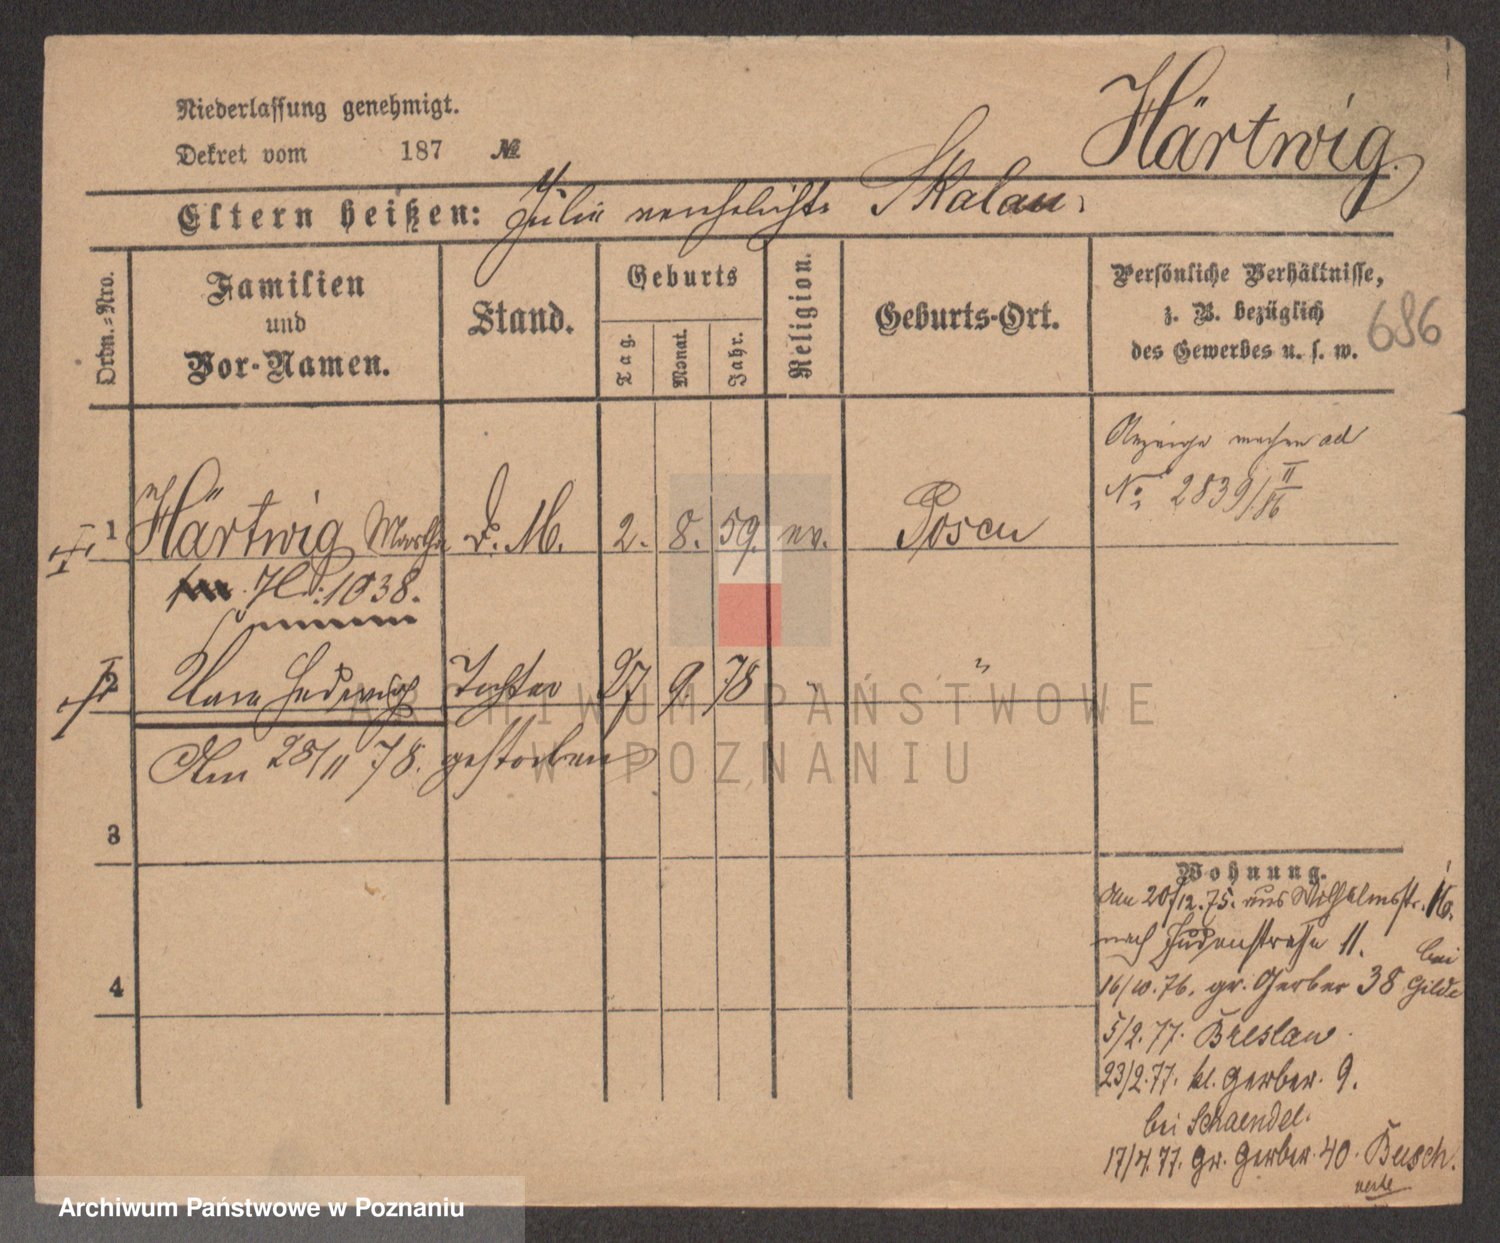 Härtwig.
Niederlassung genehmigt.
Dekret vom 187 №
Eltern heißen: Julie verehelichte Skalau.
Ordn.-Nro.
Familien
und
Vor-Namen.
Stand.
Geburts
Tag.
Monat.
Jahr.
Religion.
Geburts-Ort.
Persönliche Verhältnisse,
z. B. bezüglich
des Gewerbes u. s. w.
686
Anzeige machen ad
No. 2839/II 86
1 Härtwig Martha D. M. 2. 8. 59. ev. Posen
1038.
2 Hedwig Tochter 27 9. 78 "
Am 28/11 78. gestorben
3
4
Wohnung.
Am 20/12.75. aus Wilhelmsstr. 16.
nach Judenstraße 11.
bei
16/10.76. gr. Gerber 38 Gilde
5/2.77. Breslau.
23/2.77. kl. Gerber. 9.
bei Schaendel.
17/4.77. gr. Gerber 40. Busch.
verte
ARCHIWUM PAŃSTWOWE
W POZNANIU
Archiwum Państwowe w Poznaniu